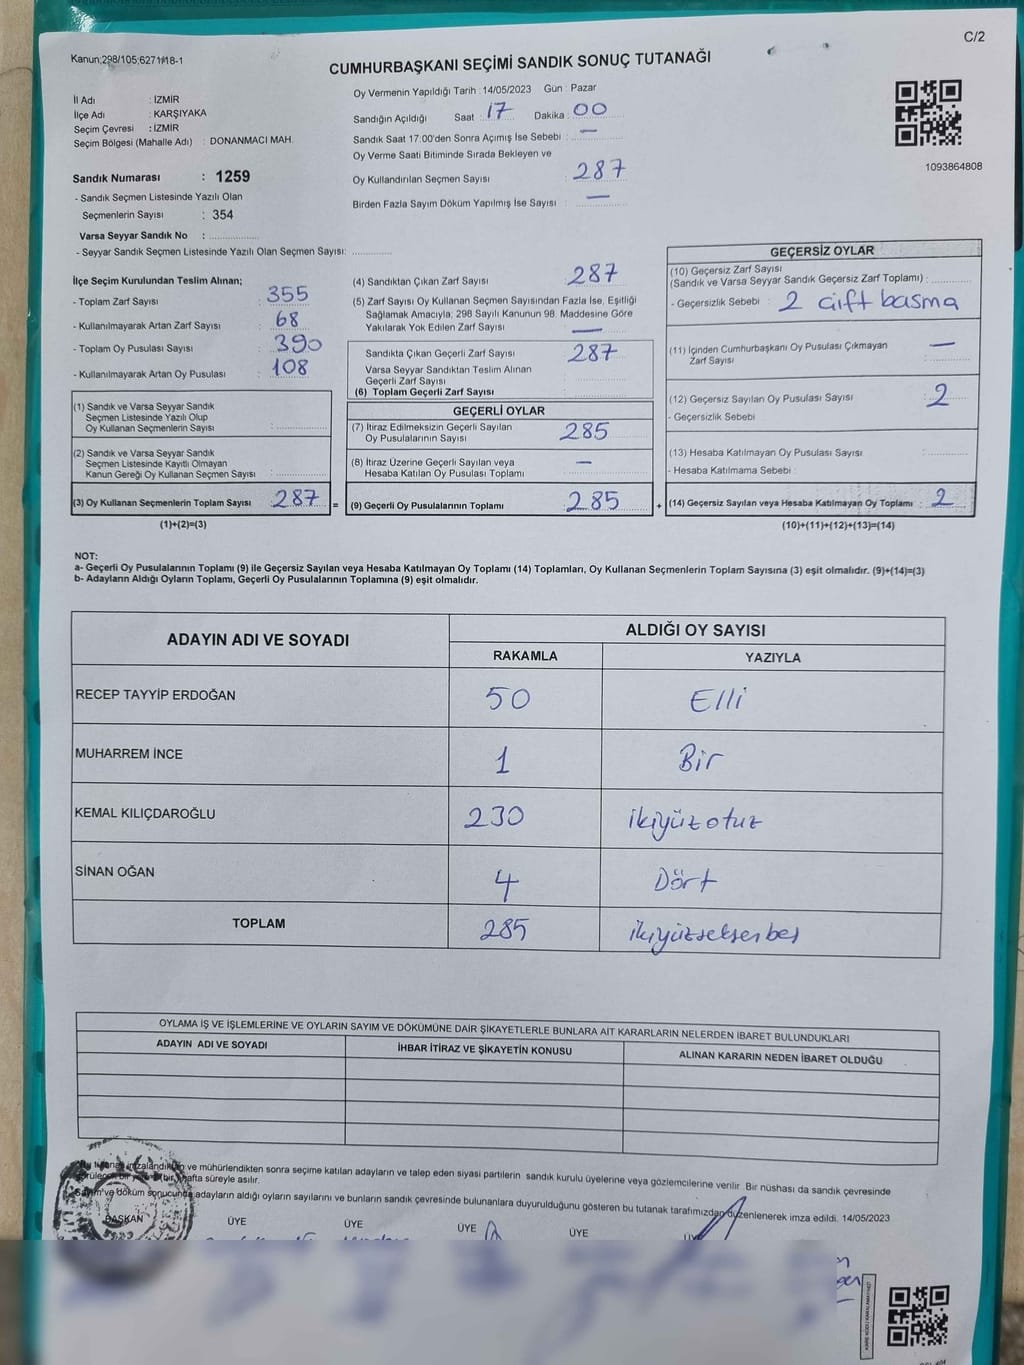 C/2
Kanun;298/105;6271#18-1
CUMHURBAŞKANI SEÇİMİ SANDIK SONUÇ TUTANAĞI
İl Adı : İZMİR
İlçe Adı : KARŞIYAKA
Seçim Çevresi : İZMİR
Seçim Bölgesi (Mahalle Adı) : DONANMACI MAH.
Sandık Numarası : 1259
- Sandık Seçmen Listesinde Yazılı Olan
Seçmenlerin Sayısı : 354
Varsa Seyyar Sandık No :
- Seyyar Sandık Seçmen Listesinde Yazılı Olan Seçmen Sayısı:
Oy Vermenin Yapıldığı Tarih : 14/05/2023 Gün : Pazar
Sandığın Açıldığı Saat : 17 Dakika : 00
Sandık Saat 17:00'den Sonra Açımış İse Sebebi : —
Oy Verme Saati Bitiminde Sırada Bekleyen ve
Oy Kullandırılan Seçmen Sayısı : 287
Birden Fazla Sayım Döküm Yapılmış İse Sayısı : —
1093864808
İlçe Seçim Kurulundan Teslim Alınan;
- Toplam Zarf Sayısı : 355
- Kullanılmayarak Artan Zarf Sayısı : 68
- Toplam Oy Pusulası Sayısı : 390
- Kullanılmayarak Artan Oy Pusulası : 108
(1) Sandık ve Varsa Seyyar Sandık
Seçmen Listesinde Yazılı Olup
Oy Kullanan Seçmenlerin Sayısı :
(2) Sandık ve Varsa Seyyar Sandık
Seçmen Listesinde Kayıtlı Olmayan
Kanun Gereği Oy Kullanan Seçmen Sayısı :
(3) Oy Kullanan Seçmenlerin Toplam Sayısı : 287 =
(1)+(2)=(3)
(4) Sandıktan Çıkan Zarf Sayısı : 287
(5) Zarf Sayısı Oy Kullanan Seçmen Sayısından Fazla İse, Eşitliği
Sağlamak Amacıyla; 298 Sayılı Kanunun 98. Maddesine Göre
Yakılarak Yok Edilen Zarf Sayısı : —
Sandıkta Çıkan Geçerli Zarf Sayısı : 287
Varsa Seyyar Sandıktan Teslim Alınan
Geçerli Zarf Sayısı :
(6) Toplam Geçerli Zarf Sayısı
GEÇERLİ OYLAR
(7) İtiraz Edilmeksizin Geçerli Sayılan
Oy Pusulalarının Sayısı : 285
(8) İtiraz Üzerine Geçerli Sayılan veya
Hesaba Katılan Oy Pusulası Toplamı : —
(9) Geçerli Oy Pusulalarının Toplamı : 285 +
GEÇERSİZ OYLAR
(10) Geçersiz Zarf Sayısı
(Sandık ve Varsa Seyyar Sandık Geçersiz Zarf Toplamı) :
- Geçersizlik Sebebi : 2 çift basma
(11) İçinden Cumhurbaşkanı Oy Pusulası Çıkmayan
Zarf Sayısı : —
(12) Geçersiz Sayılan Oy Pusulası Sayısı : 2
- Geçersizlik Sebebi
(13) Hesaba Katılmayan Oy Pusulası Sayısı :
- Hesaba Katılmama Sebebi :
(14) Geçersiz Sayılan veya Hesaba Katılmayan Oy Toplamı : 2
(10)+(11)+(12)+(13)=(14)
NOT:
a- Geçerli Oy Pusulalarının Toplamı (9) ile Geçersiz Sayılan veya Hesaba Katılmayan Oy Toplamı (14) Toplamları, Oy Kullanan Seçmenlerin Toplam Sayısına (3) eşit olmalıdır. (9)+(14)=(3)
b- Adayların Aldığı Oyların Toplamı, Geçerli Oy Pusulalarının Toplamına (9) eşit olmalıdır.
ADAYIN ADI VE SOYADI
ALDIĞI OY SAYISI
RAKAMLA YAZIYLA
RECEP TAYYİP ERDOĞAN 50 Elli
MUHARREM İNCE 1 Bir
KEMAL KILIÇDAROĞLU 230 ikiyüzotuz
SİNAN OĞAN 4 Dört
TOPLAM 285 ikiyüzseksenbeş
OYLAMA İŞ VE İŞLEMLERİNE VE OYLARIN SAYIM VE DÖKÜMÜNE DAİR ŞİKAYETLERLE BUNLARA AİT KARARLARIN NELERDEN İBARET BULUNDUKLARI
ADAYIN ADI VE SOYADI İHBAR İTİRAZ VE ŞİKAYETİN KONUSU ALINAN KARARIN NEDEN İBARET OLDUĞU
ve mühürlendikten sonra seçime katılan adayların ve talep eden siyasi partilerin sandık kurulu üyelerine veya gözlemcilerine verilir. Bir nüshası da sandık çevresinde
hafta süreyle asılır.
ve döküm sonucunda adayların aldığı oyların sayılarını ve bunların sandık çevresinde bulunanlara duyurulduğunu gösteren bu tutanak tarafımızdan düzenlenerek imza edildi. 14/05/2023
BAŞKAN ÜYE ÜYE ÜYE ÜYE